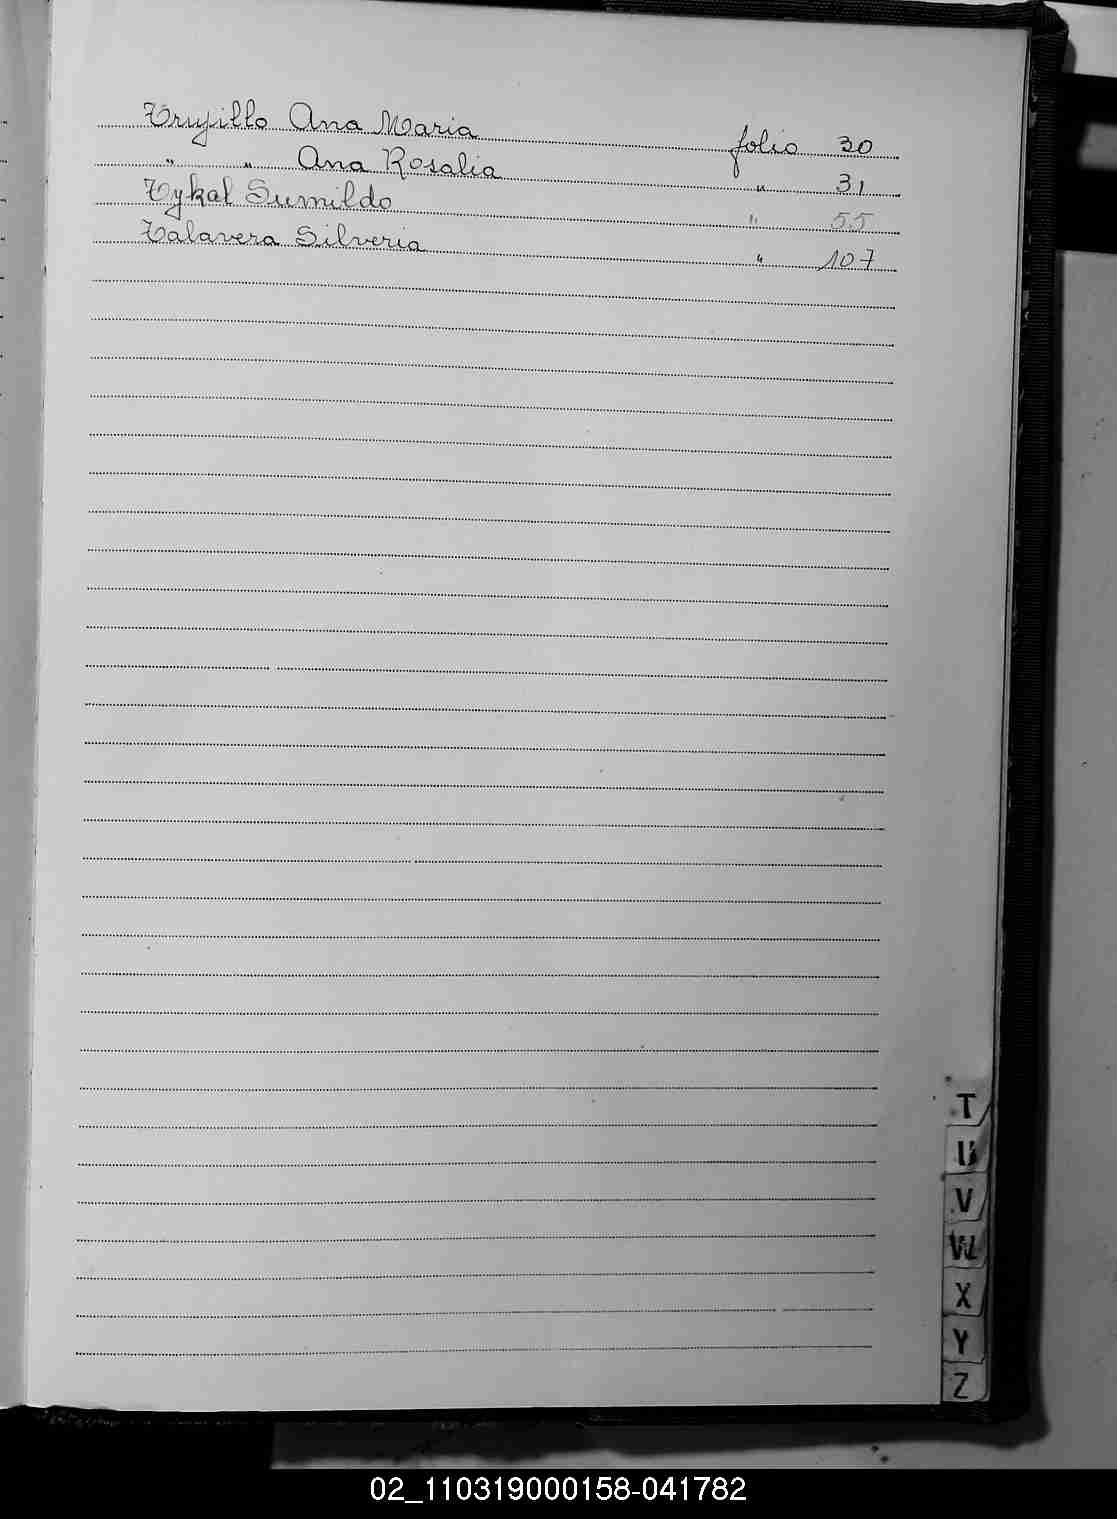 Trujillo Ana Maria folio 30
" " Ana Rosalia " 31
Tykal Sumildo " 55
Talavera Silveria " 107
T
U
V
W
X
Y
Z
02_110319000158-041782